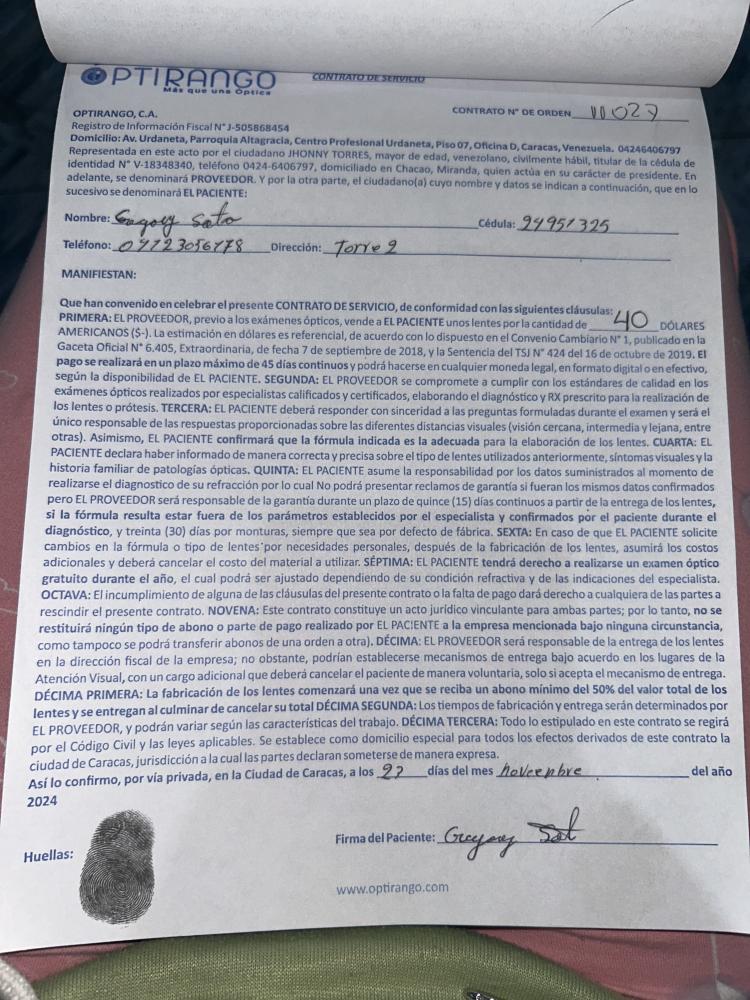 OPTIRANGO
Más que una Óptica
CONTRATO DE SERVICIO
CONTRATO N° DE ORDEN 11027
OPTIRANGO, C.A.
Registro de Información Fiscal N° J-505868454
Domicilio: Av. Urdaneta, Parroquia Altagracia, Centro Profesional Urdaneta, Piso 07, Oficina D, Caracas, Venezuela. 04246406797
Representada en este acto por el ciudadano JHONNY TORRES, mayor de edad, venezolano, civilmente hábil, titular de la cédula de
identidad N° V-18348340, teléfono 0424-6406797, domiciliado en Chacao, Miranda, quien actúa en su carácter de presidente. En
adelante, se denominará PROVEEDOR. Y por la otra parte, el ciudadano(a) cuyo nombre y datos se indican a continuación, que en lo
sucesivo se denominará EL PACIENTE:
Nombre: Gregory Soto Cédula: 24951325
Teléfono: 04123056478 Dirección: Torre 2
MANIFIESTAN:
Que han convenido en celebrar el presente CONTRATO DE SERVICIO, de conformidad con las siguientes cláusulas:
PRIMERA: EL PROVEEDOR, previo a los exámenes ópticos, vende a EL PACIENTE unos lentes por la cantidad de 40 DÓLARES
AMERICANOS ($-). La estimación en dólares es referencial, de acuerdo con lo dispuesto en el Convenio Cambiario N° 1, publicado en la
Gaceta Oficial N° 6.405, Extraordinaria, de fecha 7 de septiembre de 2018, y la Sentencia del TSJ N° 424 del 16 de octubre de 2019. El
pago se realizará en un plazo máximo de 45 días continuos y podrá hacerse en cualquier moneda legal, en formato digital o en efectivo,
según la disponibilidad de EL PACIENTE. SEGUNDA: EL PROVEEDOR se compromete a cumplir con los estándares de calidad en los
exámenes ópticos realizados por especialistas calificados y certificados, elaborando el diagnóstico y RX prescrito para la realización de
los lentes o prótesis. TERCERA: EL PACIENTE deberá responder con sinceridad a las preguntas formuladas durante el examen y será el
único responsable de las respuestas proporcionadas sobre las diferentes distancias visuales (visión cercana, intermedia y lejana, entre
otras). Asimismo, EL PACIENTE confirmará que la fórmula indicada es la adecuada para la elaboración de los lentes. CUARTA: EL
PACIENTE declara haber informado de manera correcta y precisa sobre el tipo de lentes utilizados anteriormente, síntomas visuales y la
historia familiar de patologías ópticas. QUINTA: EL PACIENTE asume la responsabilidad por los datos suministrados al momento de
realizarse el diagnostico de su refracción por lo cual No podrá presentar reclamos de garantía si fueran los mismos datos confirmados
pero EL PROVEEDOR será responsable de la garantía durante un plazo de quince (15) días continuos a partir de la entrega de los lentes,
si la fórmula resulta estar fuera de los parámetros establecidos por el especialista y confirmados por el paciente durante el
diagnóstico, y treinta (30) días por monturas, siempre que sea por defecto de fábrica. SEXTA: En caso de que EL PACIENTE solicite
cambios en la fórmula o tipo de lentes por necesidades personales, después de la fabricación de los lentes, asumirá los costos
adicionales y deberá cancelar el costo del material a utilizar. SÉPTIMA: EL PACIENTE tendrá derecho a realizarse un examen óptico
gratuito durante el año, el cual podrá ser ajustado dependiendo de su condición refractiva y de las indicaciones del especialista.
OCTAVA: El incumplimiento de alguna de las cláusulas del presente contrato o la falta de pago dará derecho a cualquiera de las partes a
rescindir el presente contrato. NOVENA: Este contrato constituye un acto jurídico vinculante para ambas partes; por lo tanto, no se
restituirá ningún tipo de abono o parte de pago realizado por EL PACIENTE a la empresa mencionada bajo ninguna circunstancia,
como tampoco se podrá transferir abonos de una orden a otra). DÉCIMA: EL PROVEEDOR será responsable de la entrega de los lentes
en la dirección fiscal de la empresa; no obstante, podrían establecerse mecanismos de entrega bajo acuerdo en los lugares de la
Atención Visual, con un cargo adicional que deberá cancelar el paciente de manera voluntaria, solo si acepta el mecanismo de entrega.
DÉCIMA PRIMERA: La fabricación de los lentes comenzará una vez que se reciba un abono mínimo del 50% del valor total de los
lentes y se entregan al culminar de cancelar su total DÉCIMA SEGUNDA: Los tiempos de fabricación y entrega serán determinados por
EL PROVEEDOR, y podrán variar según las características del trabajo. DÉCIMA TERCERA: Todo lo estipulado en este contrato se regirá
por el Código Civil y las leyes aplicables. Se establece como domicilio especial para todos los efectos derivados de este contrato la
ciudad de Caracas, jurisdicción a la cual las partes declaran someterse de manera expresa.
Así lo confirmo, por vía privada, en la Ciudad de Caracas, a los 27 días del mes noveenbre del año
2024
Firma del Paciente: Gregory Sot
Huellas:
www.optirango.com